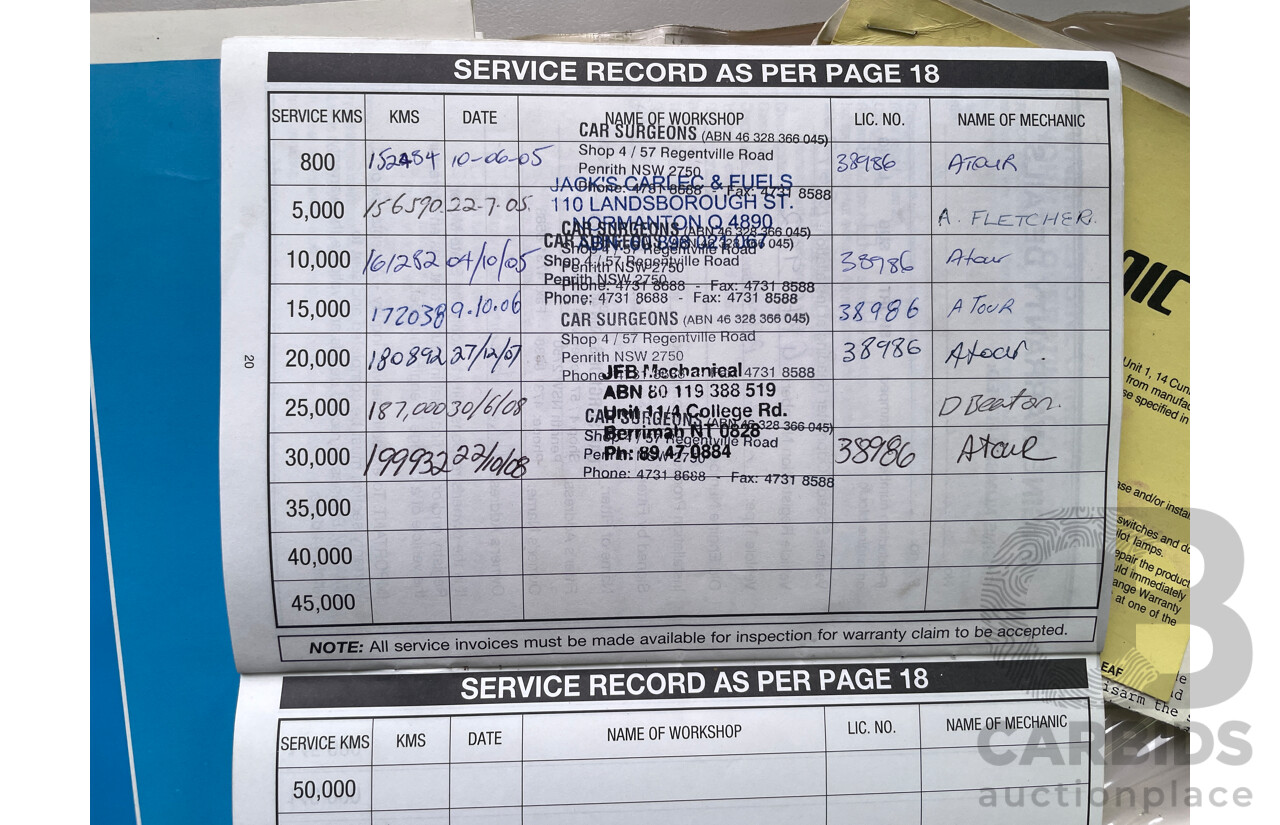 SERVICE RECORD AS PER PAGE 18
SERVICE KMS KMS DATE NAME OF WORKSHOP LIC. NO. NAME OF MECHANIC
CAR SURGEONS (ABN 46 328 366 045)
Shop 4 / 57 Regentville Road
Penrith NSW 2750
Phone: 4731 8688 - Fax: 4731 8588
800 152484 10-06-05 38986 ATOUR
JACK'S CARLEC & FUELS
110 LANDSBOROUGH ST.
NORMANTON Q 4890
5,000 156590 22-7-05. A. FLETCHER.
CAR SURGEONS (ABN 46 328 366 045)
Shop 4 / 57 Regentville Road
Penrith NSW 2750
Phone: 4731 8688 - Fax: 4731 8588
10,000 161282 04/10/05 38986 Atour
CAR SURGEONS
Shop 4 / 57 Regentville Road
Penrith NSW 2750
Phone: 4731 8688 - Fax: 4731 8588
15,000 172038 9.10.06 38986 A TOUR
CAR SURGEONS (ABN 46 328 366 045)
Shop 4 / 57 Regentville Road
Penrith NSW 2750
Phone: 4731 8688 Fax: 4731 8588
20,000 180892 27/12/07 38986 Atour.
JFB Mechanical
ABN 80 119 388 519
Unit 11/4 College Rd.
Berrimah NT 0828
Ph: 89 47 0884
25,000 187,000 30/6/08 D Beaton.
CAR SURGEONS (ABN 46 328 366 045)
Shop 4 / 57 Regentville Road
Penrith NSW 2750
Phone: 4731 8688 - Fax: 4731 8588
30,000 199932 22/10/08 38986 ATOUR
35,000
40,000
45,000
NOTE: All service invoices must be made available for inspection for warranty claim to be accepted.
20
SERVICE RECORD AS PER PAGE 18
SERVICE KMS KMS DATE NAME OF WORKSHOP LIC. NO. NAME OF MECHANIC
50,000
NIC
Unit 1, 14 Cun
from manufa
se specified in
ase and/or instal
switches and do
ilot lamps.
epair the product
uld immediately
ange Warranty
at one of the
EAF
isarm the
CARBIDS
auctionplace